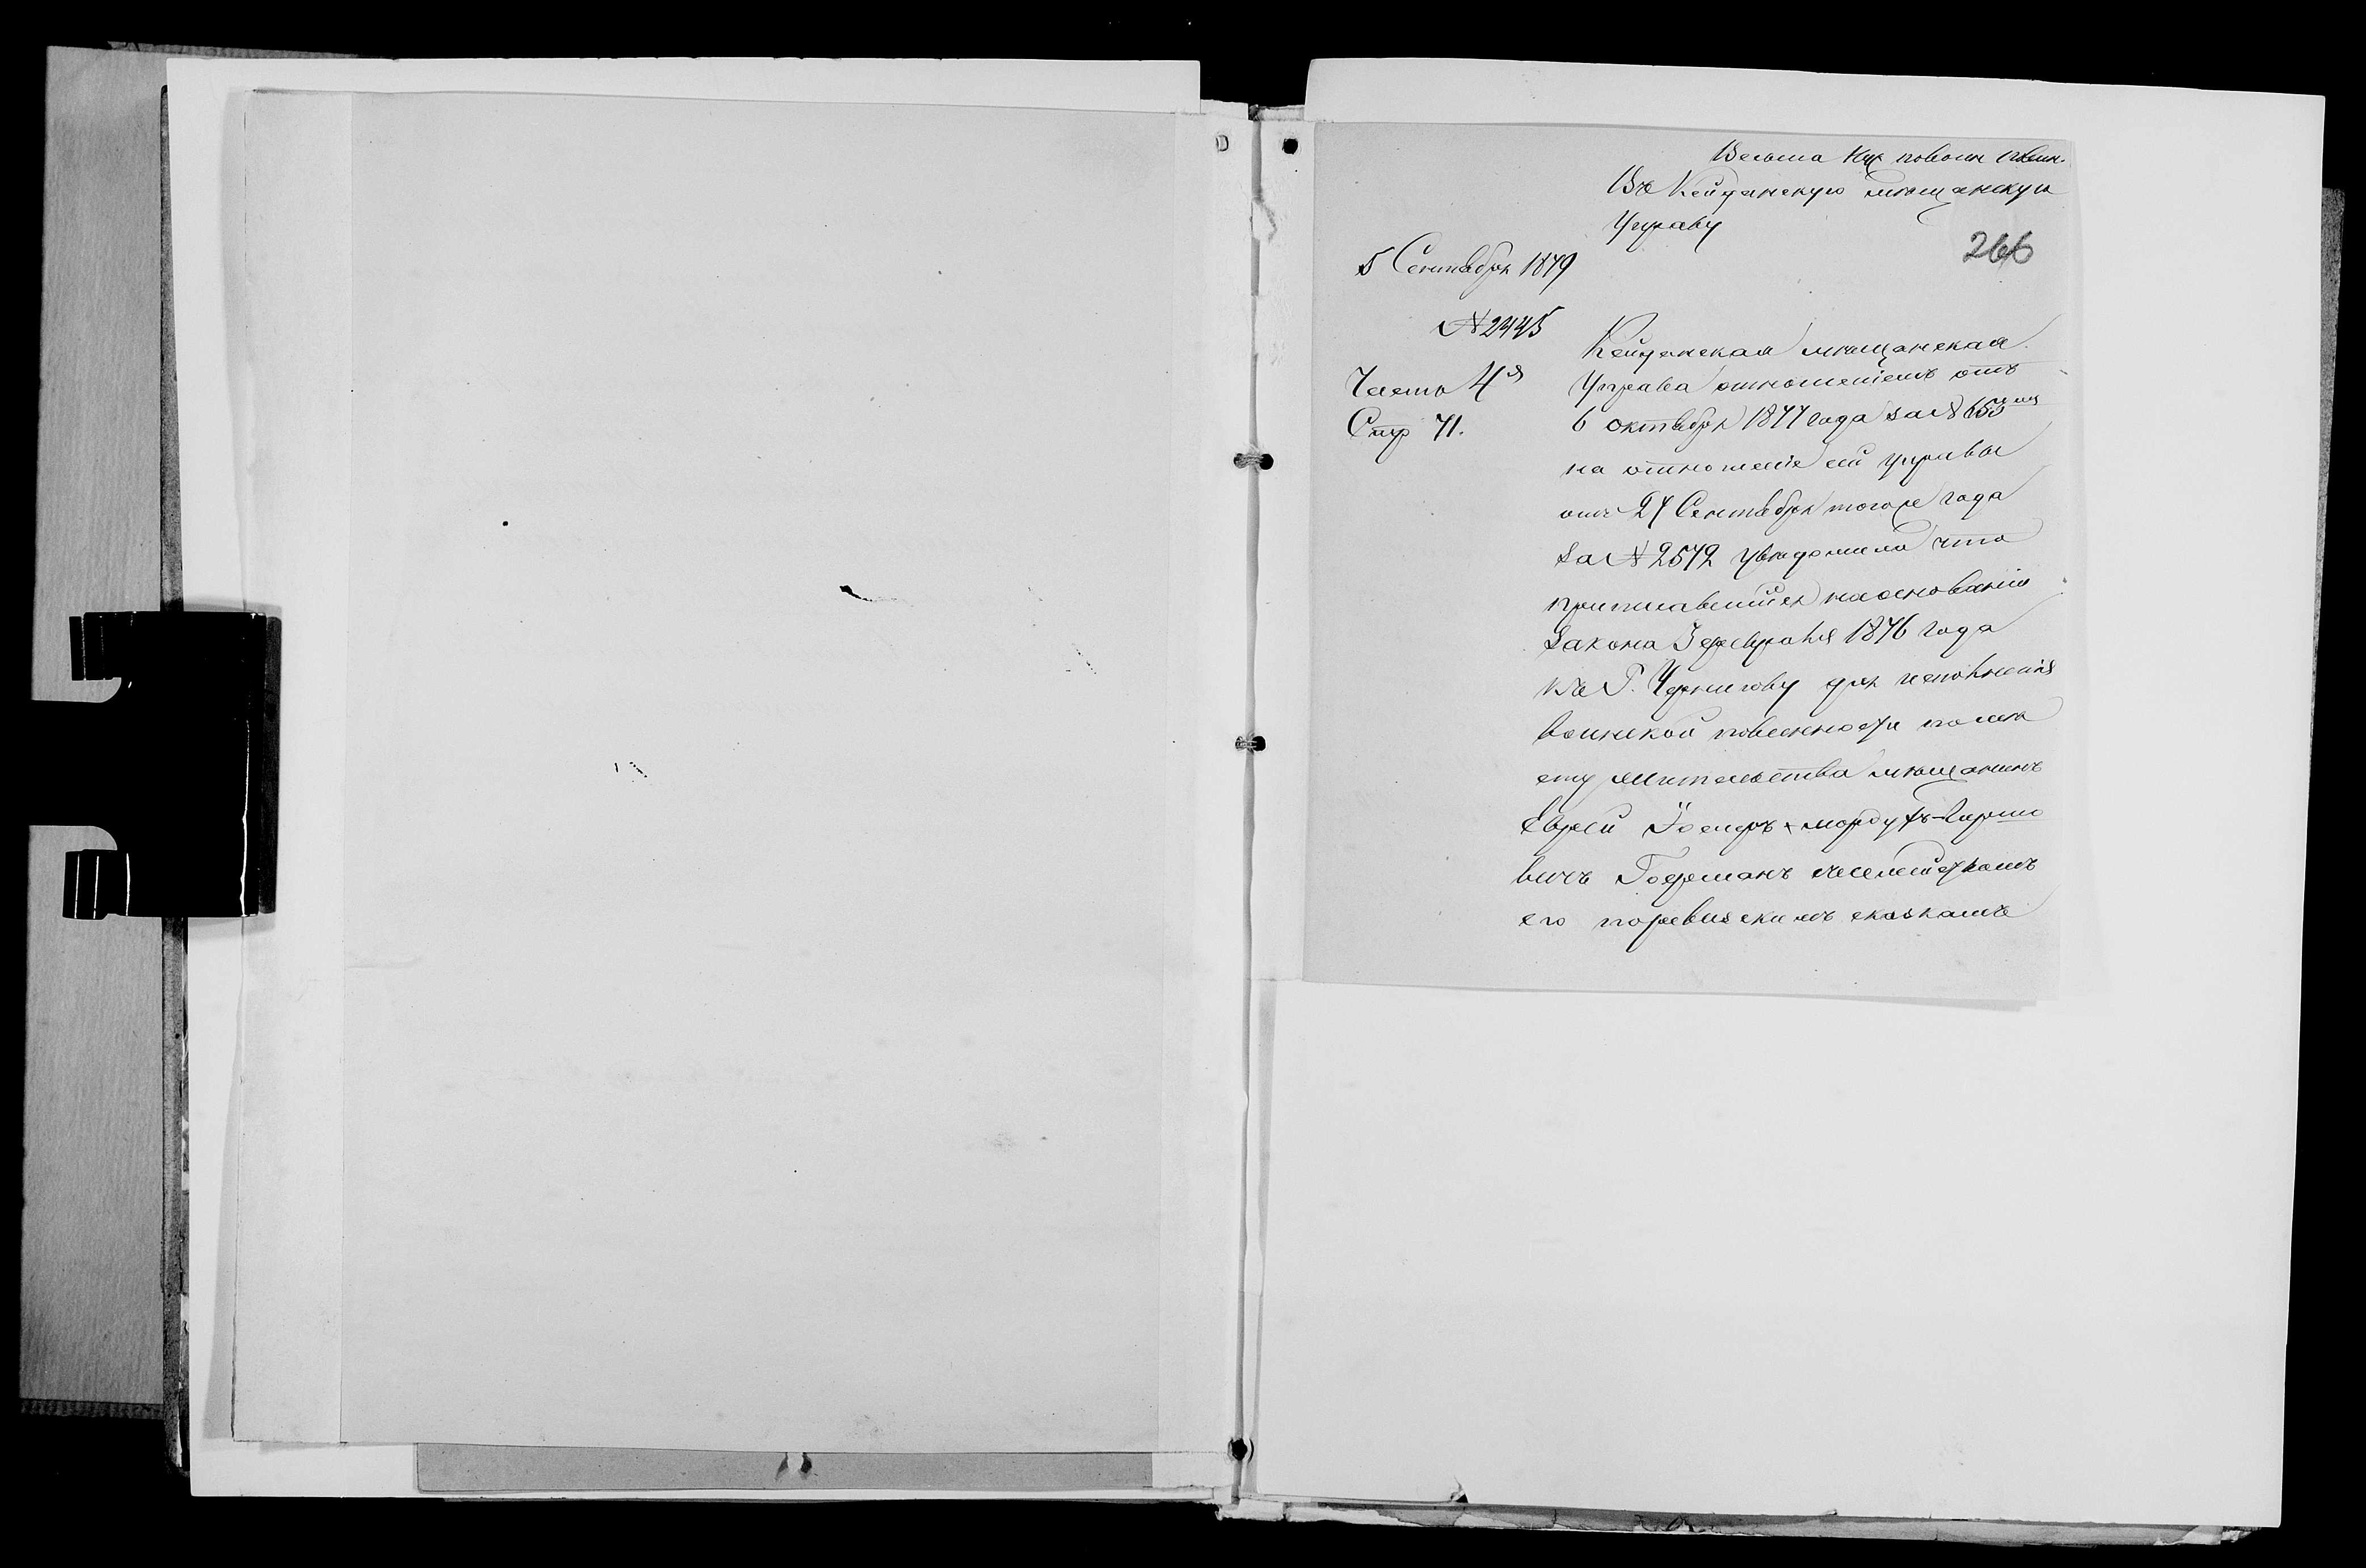 Весьма Нуж повоин повин.
Въ Кейданскую мѣщанскую
Управу
266
5 Сентября 1879
№ 2445
Часть 4я
Стр 71.
Кейданская мѣщанская
Управа отношеніемъ отъ
6 октября 1877 года за № 653
на отношеніе сей управы
отъ 27 Сентября тогоже года
за № 2572 увѣдомила что
приписавшійся наоснованіи
Закона 3 февраля 1876 года
къ Г. Чернигову для исполненія
воинской повинности помѣ
сту жительства мѣщанинъ
Еврей Іосифъ-мордухъ-Гиршо
вичъ Гофманъ исемействомъ
его поревизскимъ сказкамъ